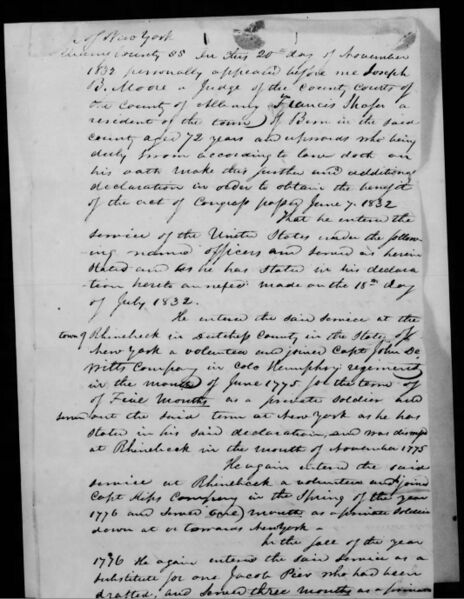 of New York
County SS On this 20th day of November
1832 personally appeared before me Joseph
B. Moore a Judge of the County Courts of
the County of Albany Francis Shafer a
resident of the town of Bern in the said
County aged 72 years and upwards who being
duly sworn according to law doth on
his oath make this further and additional
declaration in order to obtain the benefit
of the act of Congress passed June 7. 1832
That he entered the
service of the United States under the follow-
ing named officers and served as herein
Stated and as he has stated in his declara
tion hereto annexed made on the 18th day
of July 1832.
He entered the said service at the
town of Rhinebeck in Dutchess County in the State of
New York a volunteer and joined Capt John De
Witts Company in Colo Hemphry regement
in the month of June 1775 for the term of
of Five Months as a private soldier and
served out the said term at New York as he has
stated in his said declaration, and was
at Rhinebeck in the month of November 1775
He again entered the said
service at Rhinebeck a volunteer and joined
Capt Kips Company in the Spring of the year
1776 and served month as a private soldier
down at or towards New York
In the fall of the year
1776 He again entered the said service as a
substitute for one Jacob Pier who had been
drafted, and served three months as a private